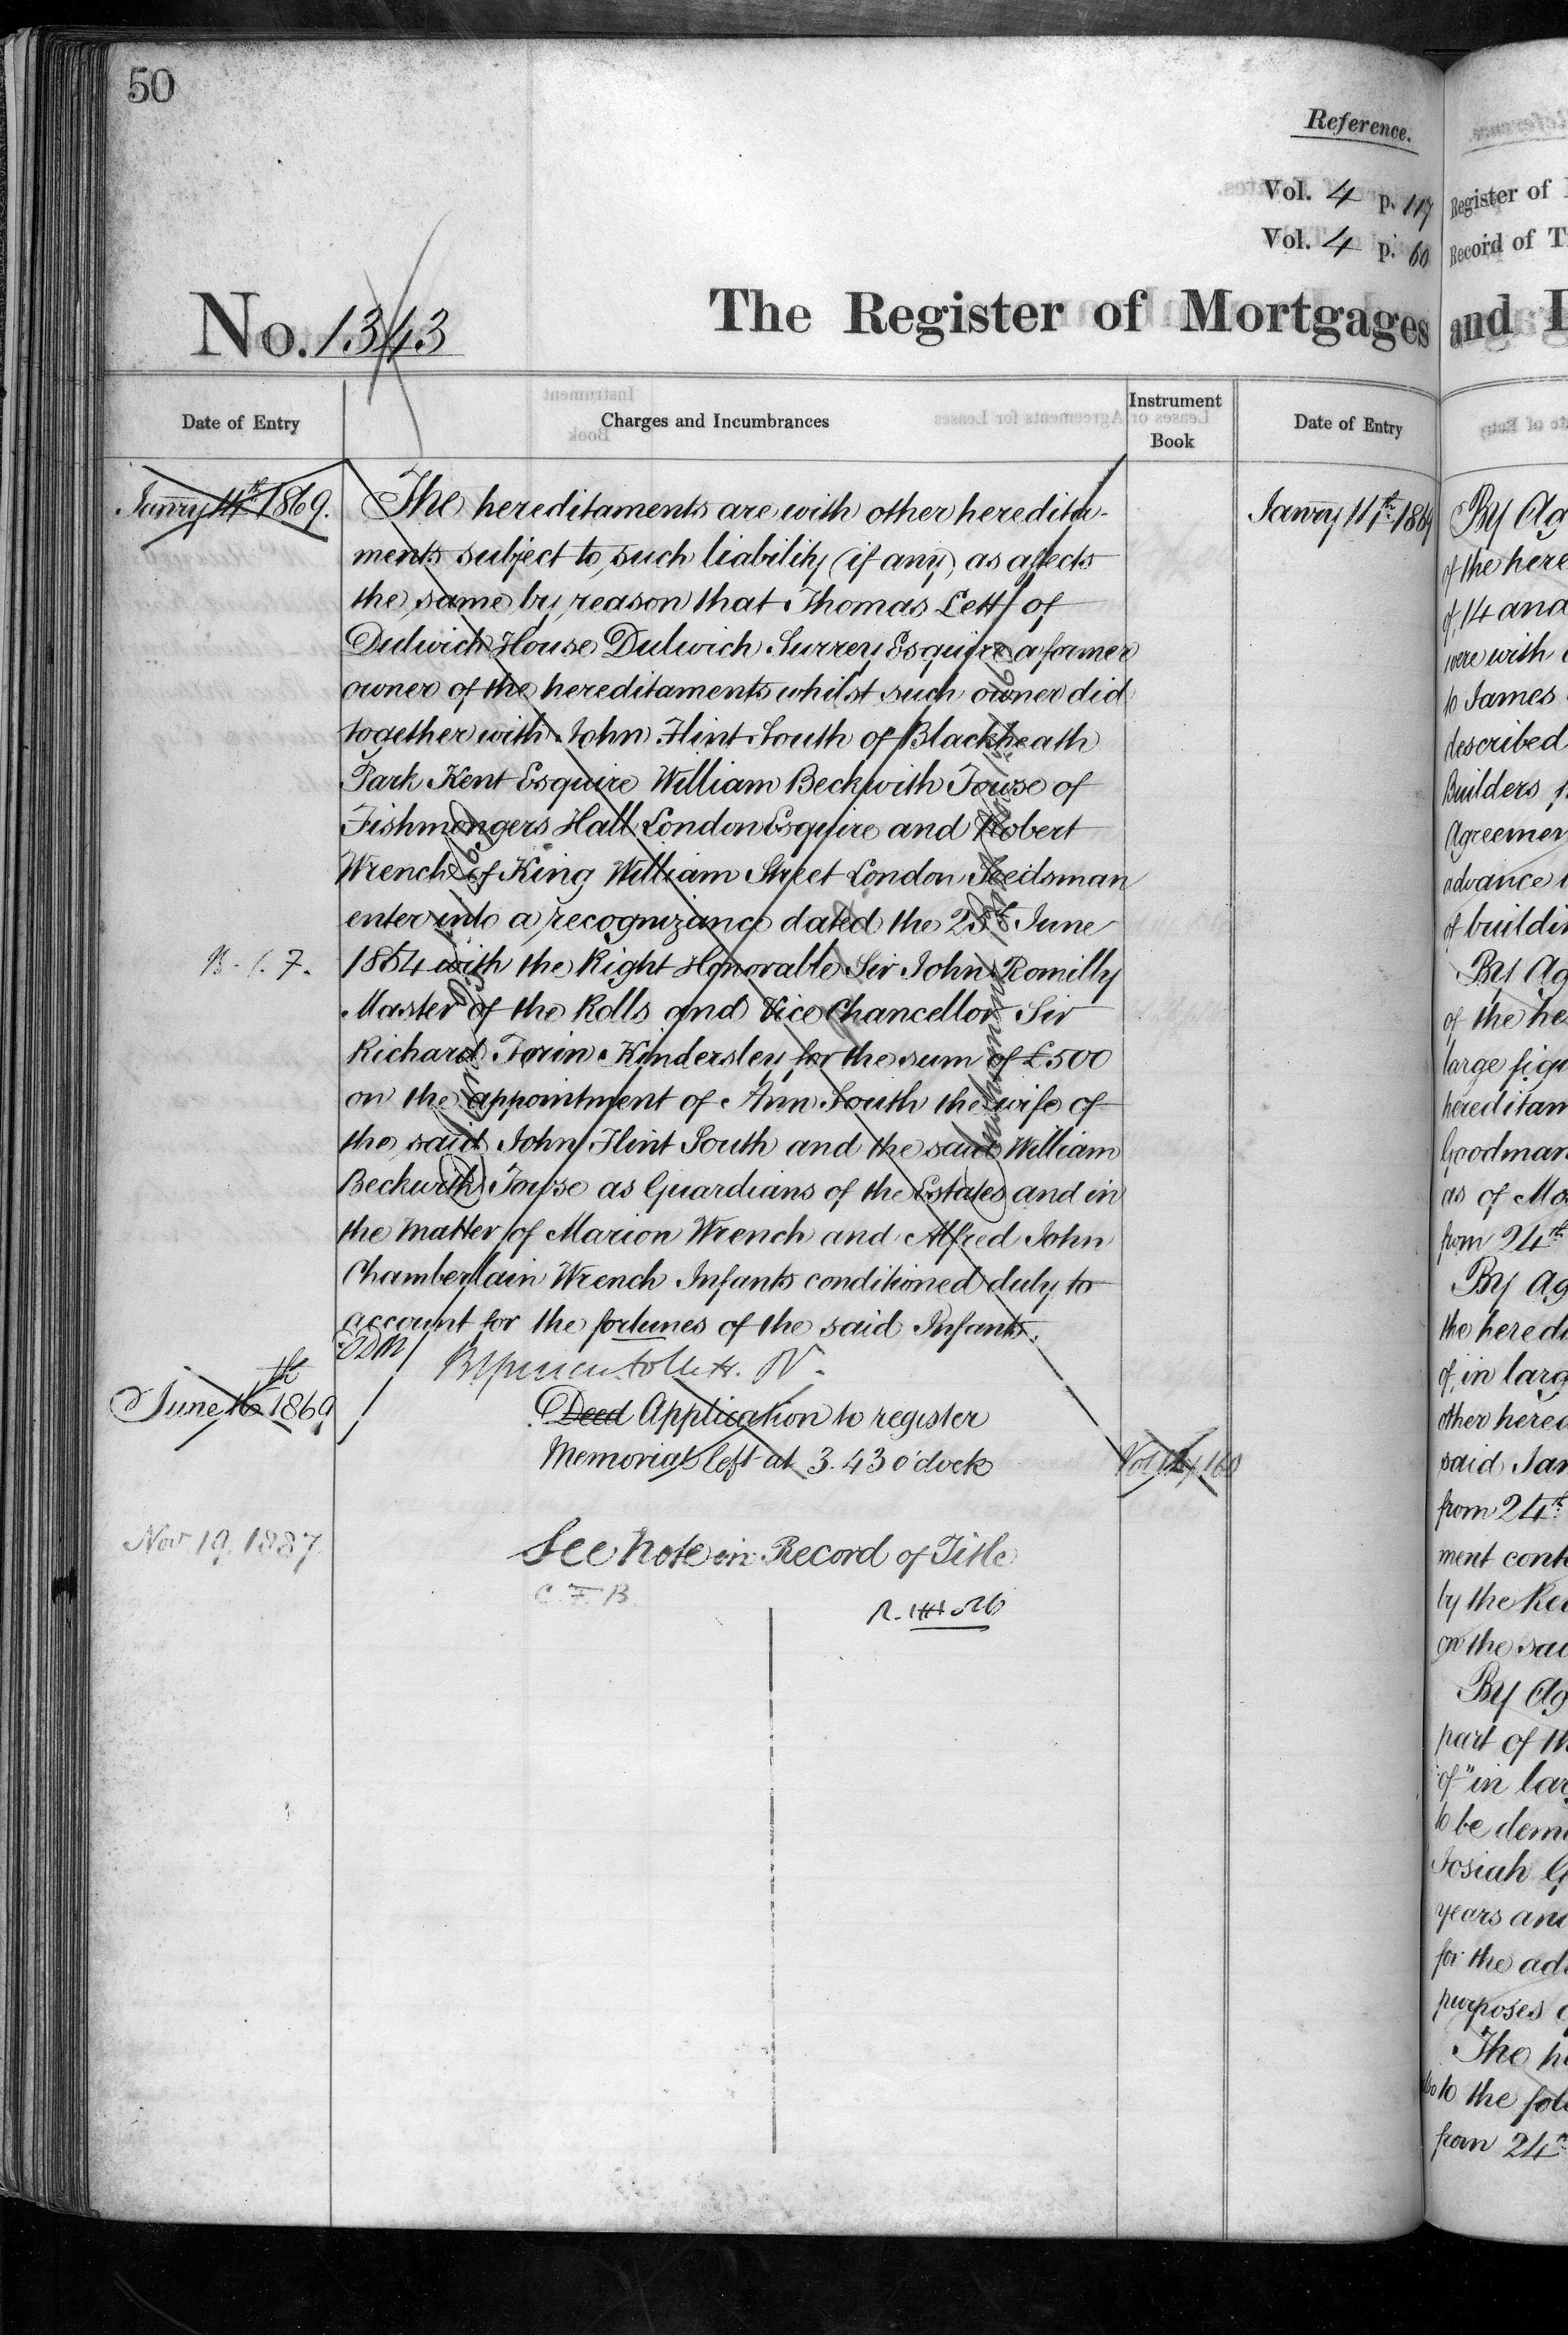 50
Reference.
Vol. 4 p. 117
Vol. 4 p. 60
No. 1343
The Register of Mortgages
Date of Entry
Charges and Incumbrances
Instrument
Book
Date of Entry
Janry 11th 1869.
The hereditaments are with other heredita-
ments subject to such liability (if any) as affects
the same by reason that Thomas Lett of
Dulwich House Dulwich Surrey Esquire a former
owner of the hereditaments whilst such owner did
together with John Flint South of Blackheath
Park Kent Esquire William Beckwith Towse of
Fishmongers Hall London Esquire and Robert
Wrench of King William Street London Seedsman
enter into a recognizance dated the June
1854 with the Right Honorable Sir John Romilly
Master of the Rolls and Vice Chancellor Sir
Richard Torin Kindersley for the sum of £500
on the appointment of Ann South the wife of
the said John Flint South and the said William
Beckwith Towse as Guardians of the Estates and in
the matter of Marion Wrench and Alfred John
Chamberlain Wrench Infants conditioned duly to
account for the fortunes of the said Infants.
June 16th 1869
Deed Application to register
Memorial left at 3.43 o'clock
Nov 19. 1887
See Note in Record of Title
C. F. B.
Janry 11th 1869
and
Register of
Record of
By Ag
of the here
of, 14 and
were with
to James
described
Builders
Agreemen
advance
of buildin
By Ag
of the he
large figu
hereditam
Goodman
as of
from 24th
By Ag
the heredi
of, in larg
other hered
said Jan
from 24th
ment cont
by the
on the said
By Ag
part of th
of "in lar
to be demi
Josiah G
years and
for the adv
purposes
The h
to the foll
from 24th